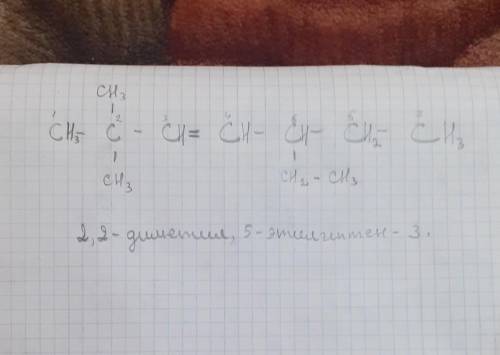 CH₃
¹CH₃ - ²C - ³CH = ⁴CH - ⁵CH - ⁶CH₂ - ⁷CH₃
CH₃ CH₂ - CH₃
2,2-диметил, 5-этилгептен-3.